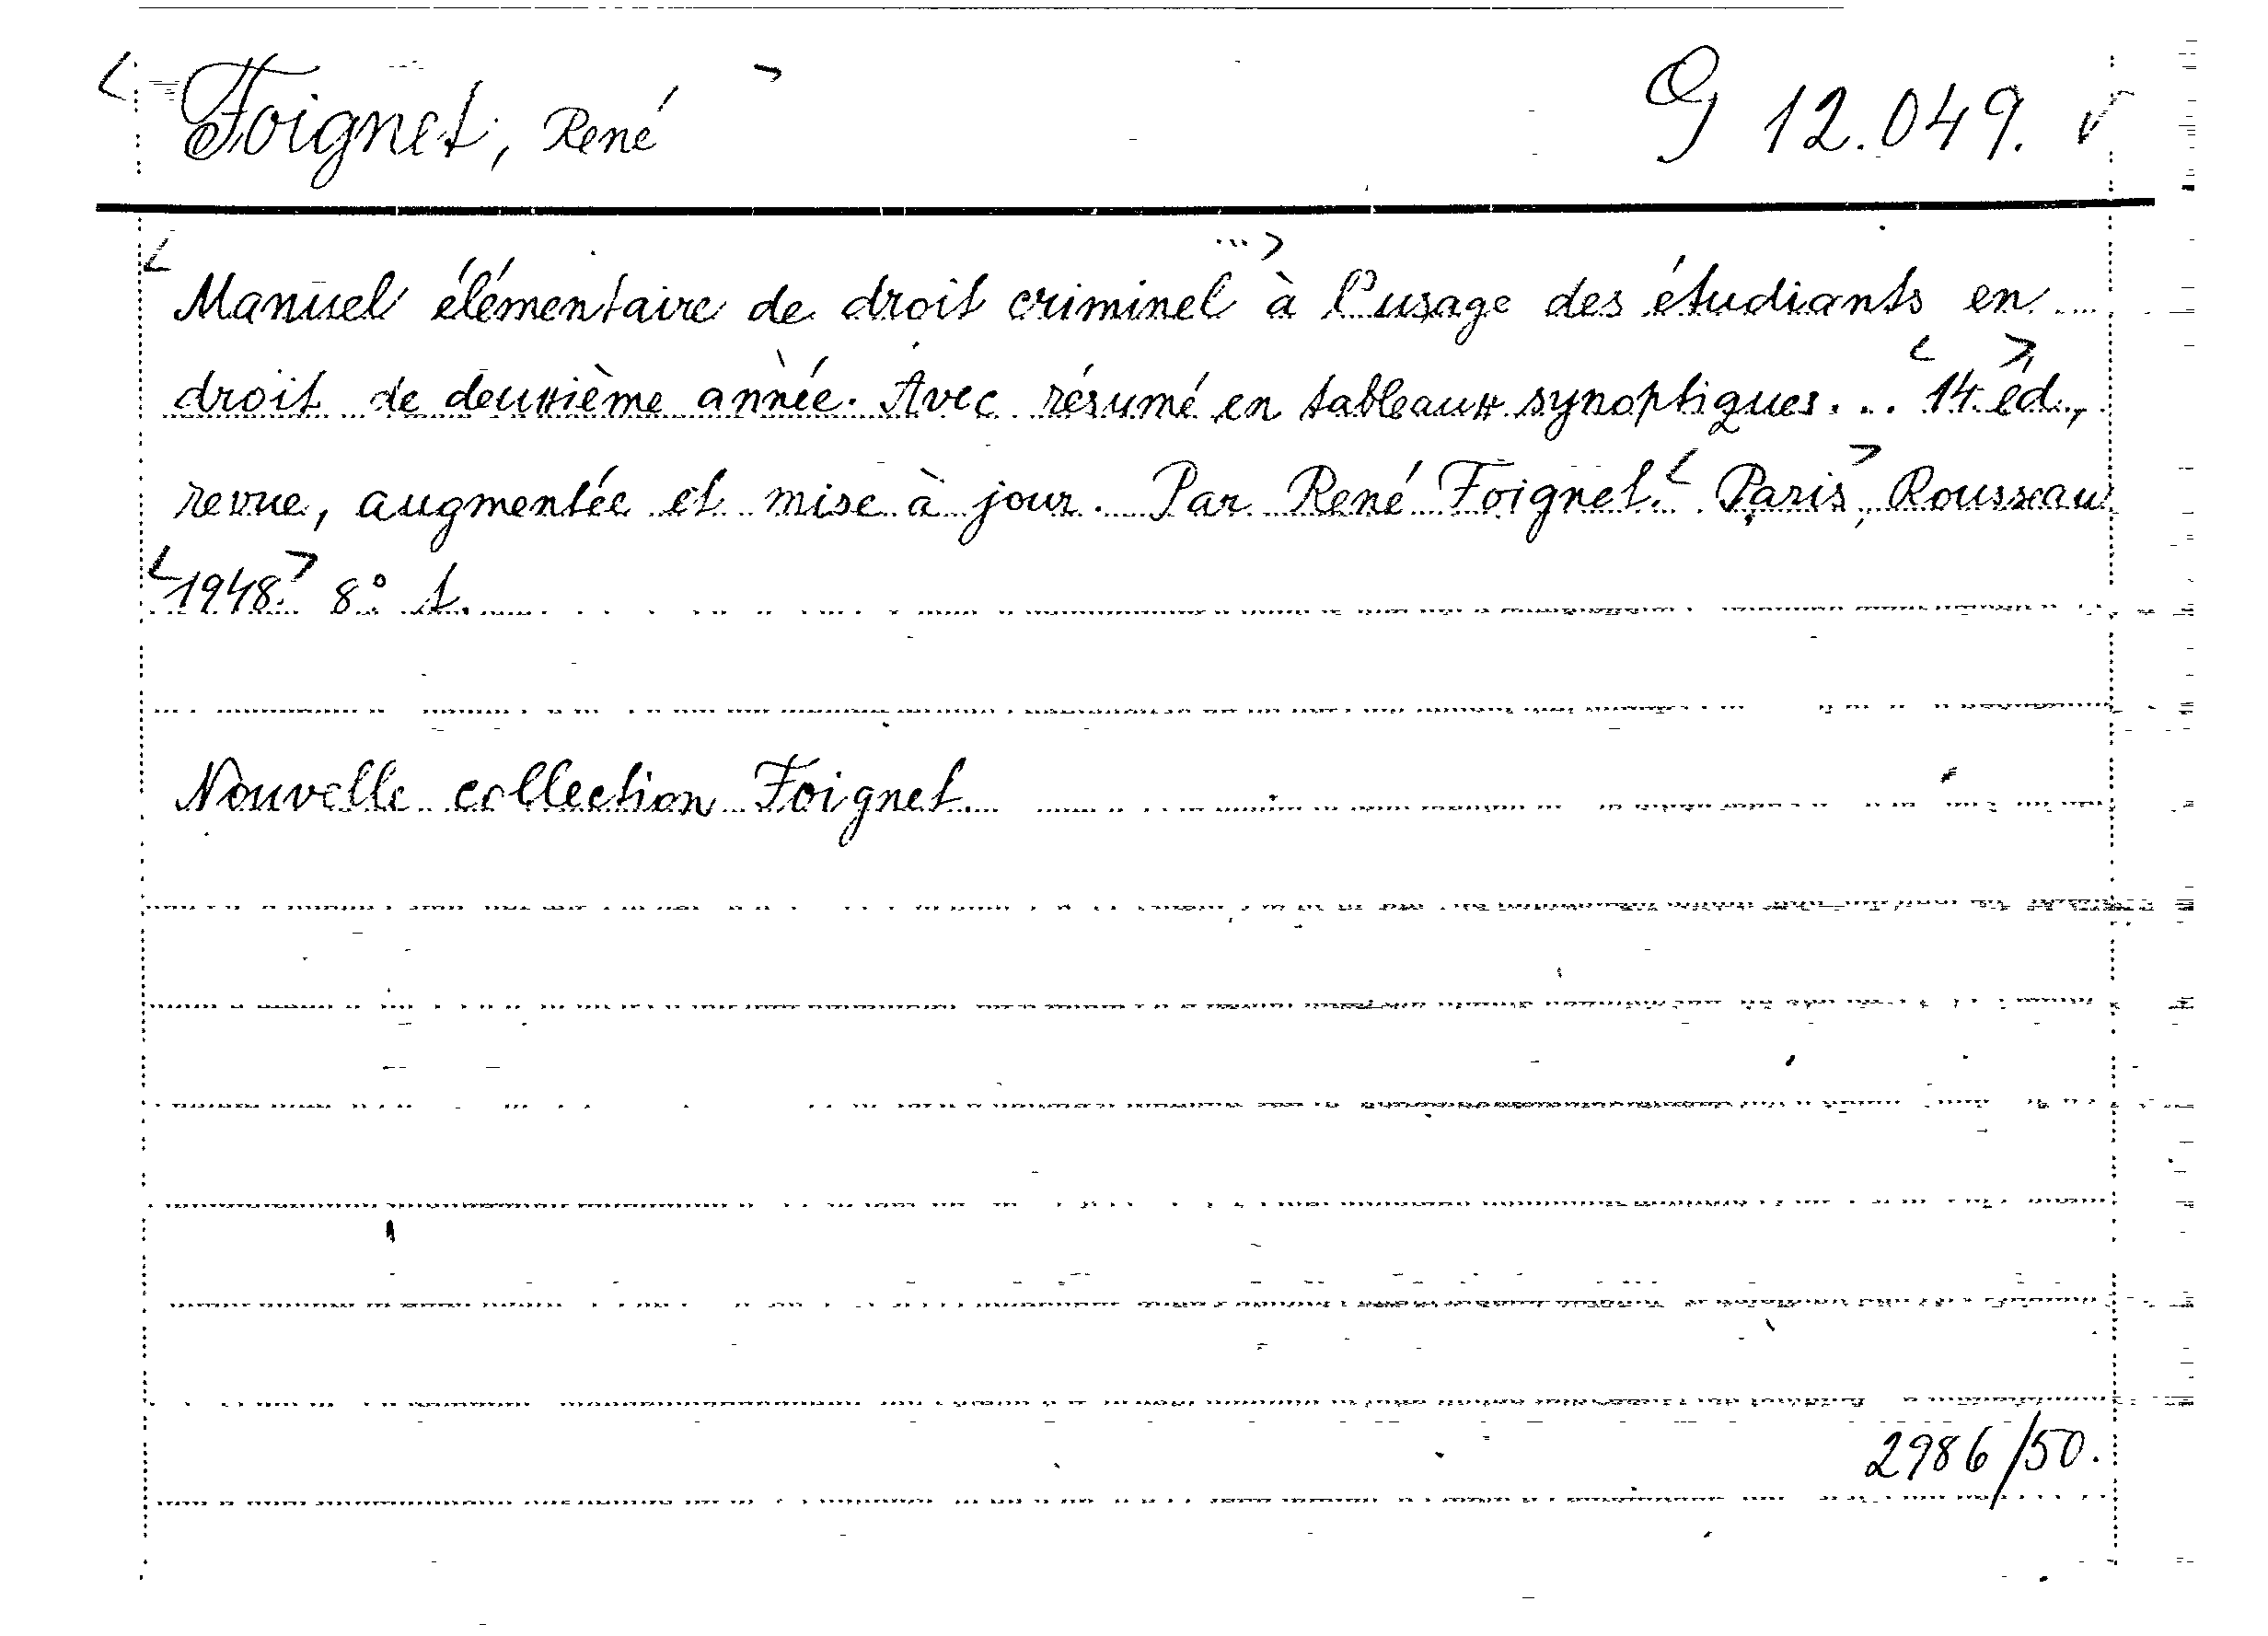 < Foignet, René > G 12.049. v
< Manuel élémentaire de droit criminel ...> à l'usage des étudiants en
droit de deuxième année. Avec résumé en tableaux synoptiques... <14> éd.,
revue, augmentée et mise à jour. Par René Foignet. <Paris>, Rousseau
<1948.> 8°
Nouvelle collection Foignet.
2986/50.